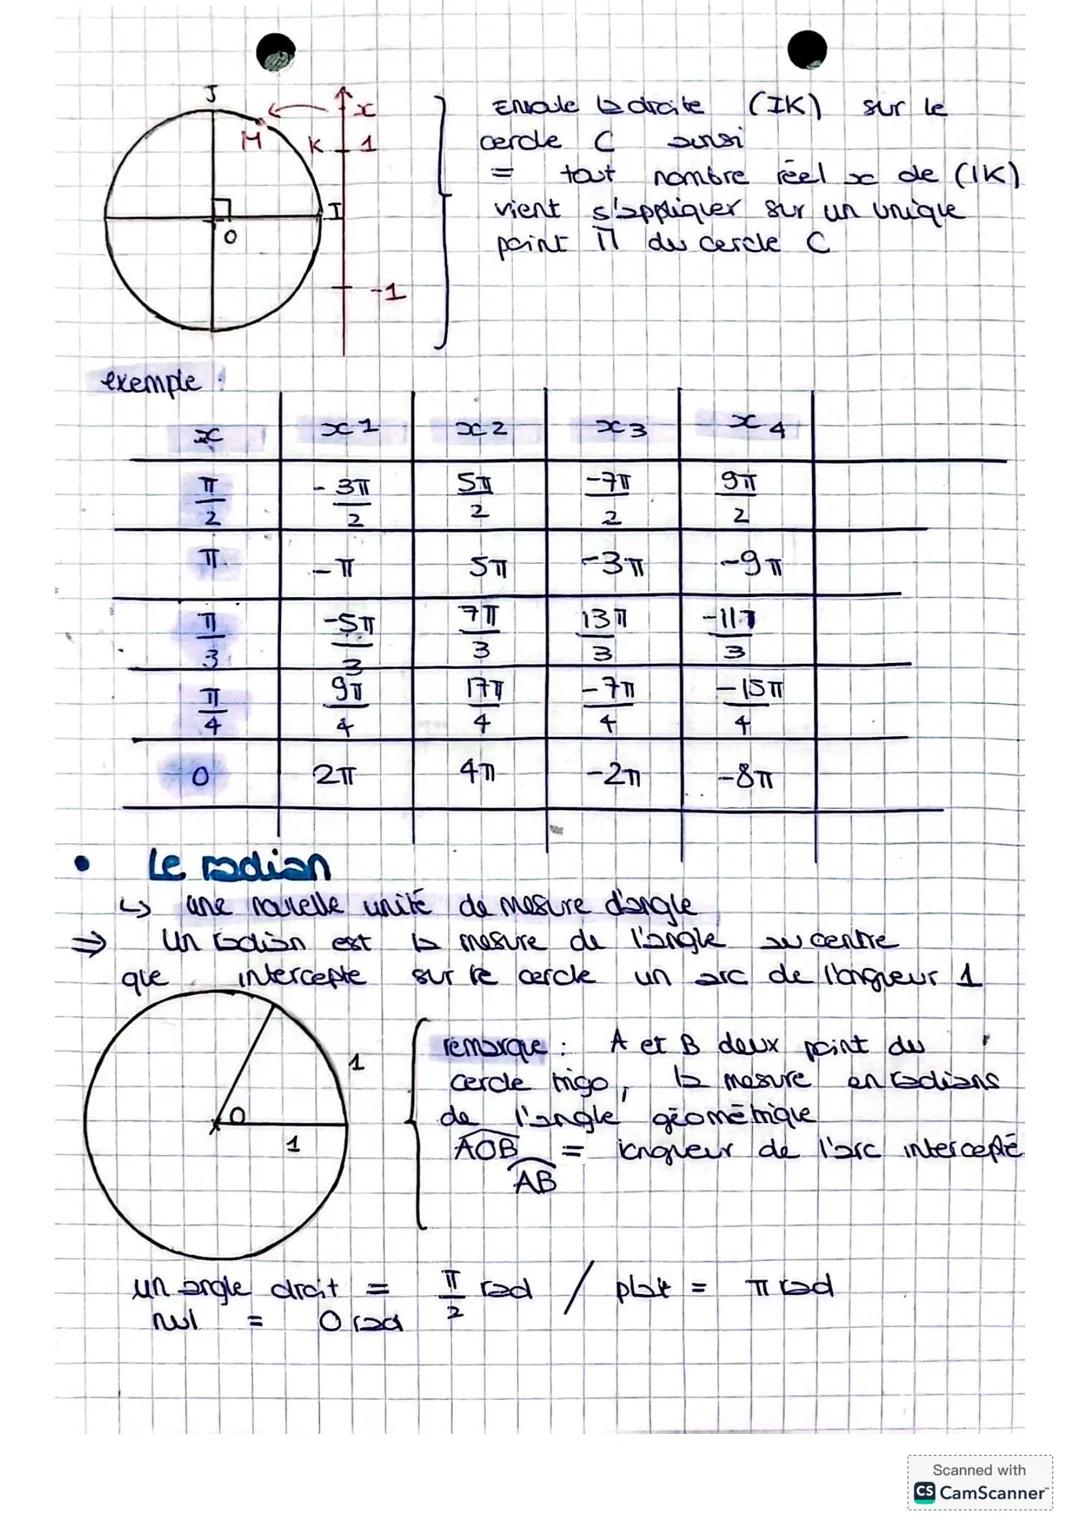 J
x
M
K 1
I
O
-1
Enroule la droite (IK) sur le
cercle C ainsi
= tout nombre réel x de (IK)
vient s'appliquer sur un unique
point M du cercle C
exemple :
x x1 x2 x3 x4
π/2 -3π/2 5π/2 -7π/2 9π/2
π -π 5π -3π -9π
π/3 -5π/3 7π/3 13π/3 -11π/3
π/4 9π/4 17π/4 -7π/4 -15π/4
0 2π 4π -2π -8π
• Le radian
↳ une nouvelle unité de mesure d'angle
⇒ Un radian est la mesure de l'angle au centre
que intercepte sur le cercle un arc de longueur 1
1
O
1
remarque : A et B deux point du
cercle trigo, la mesure en radians
de l'angle géométrique
AOB = longueur de l'arc intercepté
AB
un angle droit = π/2 rad / plat = π rad
nul = 0 rad
Scanned with
CS CamScanner